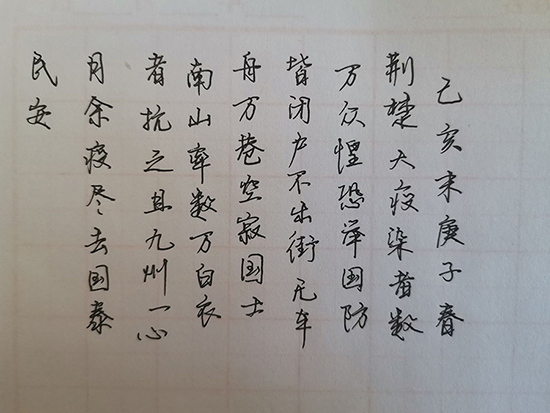 己亥末庚子春
荆楚大疫染者数
万众惶恐举国防
皆闭户不出街无车
舟万巷空寂国士
南山率数万白衣
者抗之且九州一心
月余疫尽去国泰
民安